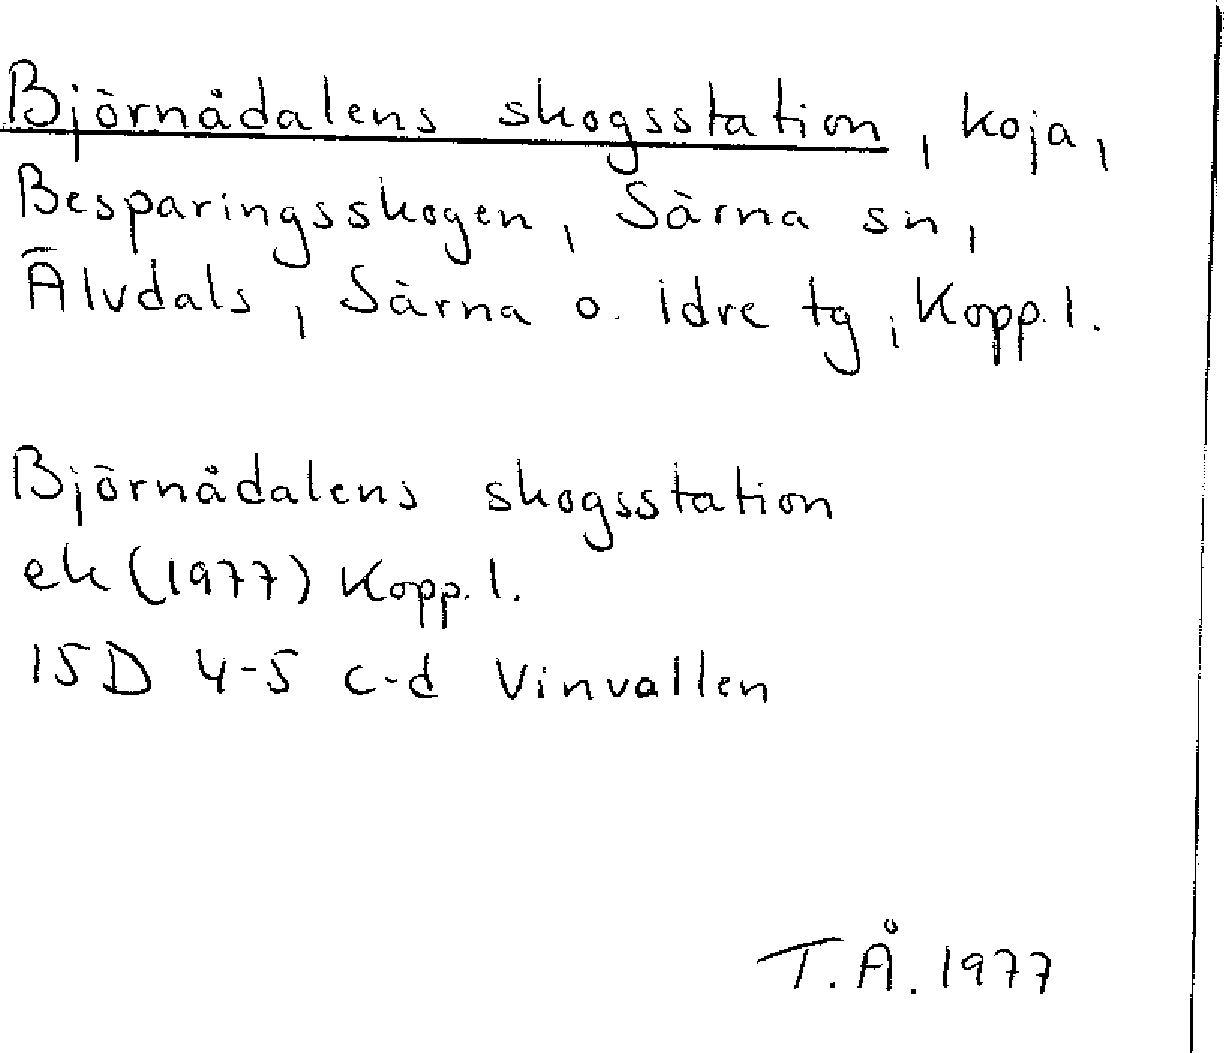 Björnådalens skogsstation, koja,
Besparingsskogen, Särna sn,
Älvdals, Särna o. Idre tg, Kopp. l.
Björnådalens skogsstation
ek (1977) Kopp. l.
15D 4-5 c-d Vinvallen
T.Å. 1977